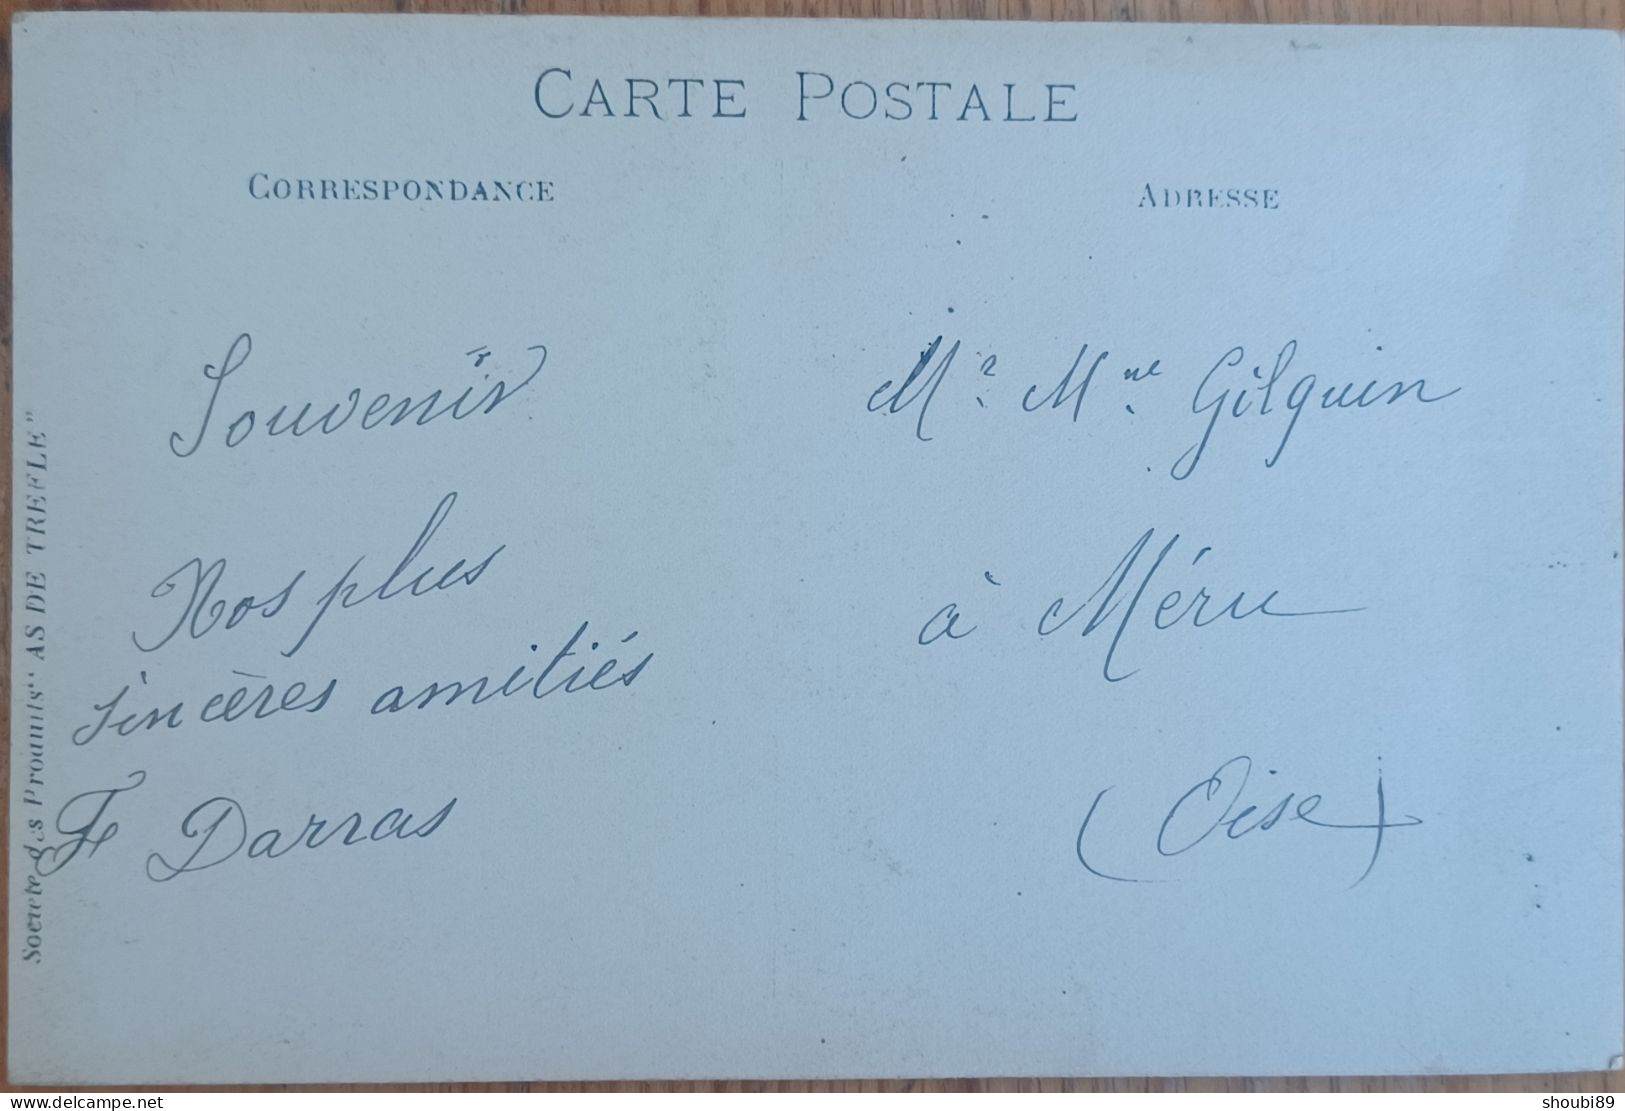 CARTE POSTALE
CORRESPONDANCE
ADRESSE
Souvenir
Nos plus
sincères amitiés
F Darras
Mr. Mme. Gilquin
à Méru
(Oise)
Société des Produits "AS DE TREFLE"
delcampe.net
shoubi89